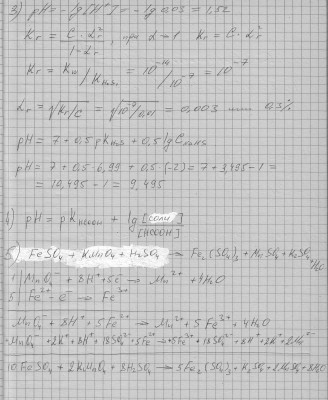 3) pH = -lg[H⁺] = -lg 0.03 = 1,52
Kг = C · Lг² / 1-Lг, при L→1 Kг = C · Lг²
Kг = Kw / KH₂S₁ = 10⁻¹⁴ / 10⁻⁷ = 10⁻⁷
Lг = √Kг/C = √10⁻⁷/0,01 = 0,003 0,3%
pH = 7 + 0,5 pKH₂S + 0,5 lg CNaHS
pH = 7 + 0,5 · 6,99 + 0,5 (-2) = 7 + 3,495 - 1 =
= 10,495 - 1 = 9,495
4) pH = pKHCOOH + lg [соли] / [HCOOH]
5) FeSO₄ + KMnO₄ + H₂SO₄ → Fe₂(SO₄)₃ + MnSO₄ + K₂SO₄ + H₂O
1| MnO₄⁻ + 8H⁺ + 5e⁻ → Mn²⁺ + 4H₂O
5| Fe²⁺ - e⁻ → Fe³⁺
MnO₄⁻ + 8H⁺ + 5Fe²⁺ → Mn²⁺ + 5Fe³⁺ + 4H₂O
10FeSO₄ + 2KMnO₄ + 8H₂SO₄ → 5Fe₂(SO₄)₃ + K₂SO₄ + 2MnSO₄ + 8H₂O